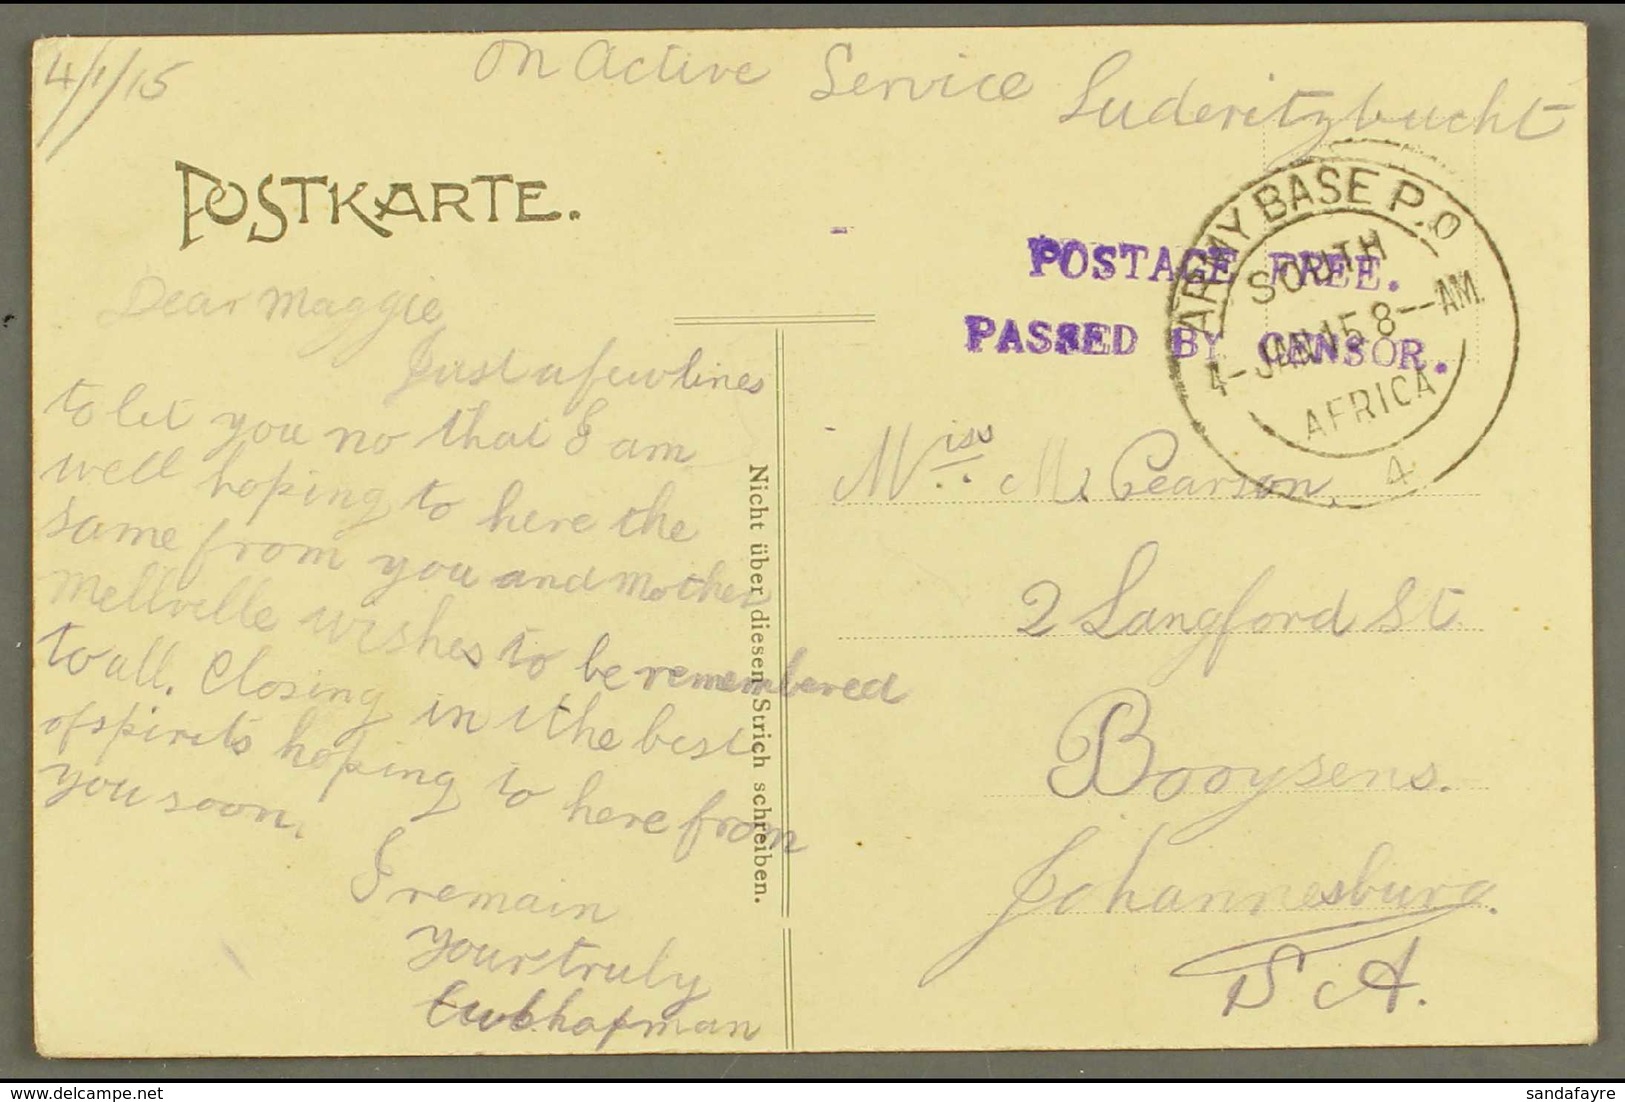 4/1/15
On Active Service Luderitzbucht
POSTKARTE.
ARMY BASE P.O
SOUTH
4-JAN 15 8--AM.
AFRICA
4
POSTAGE FREE.
PASSED BY CENSOR.
Dear Maggie
Just a few lines
to let you no that I am
well hoping to here the
same from you and Mother
Mellville wishes to be remembered
to all. Closing in the best
of spirits hoping to here from
you soon.
I remain
Yours truly
Chapman
Nicht über diesen Strich schreiben.
Miss M. Pearson.
2 Langford St.
Booysens.
Johannesburg.
S.A.
delcampe.net
sandafayre